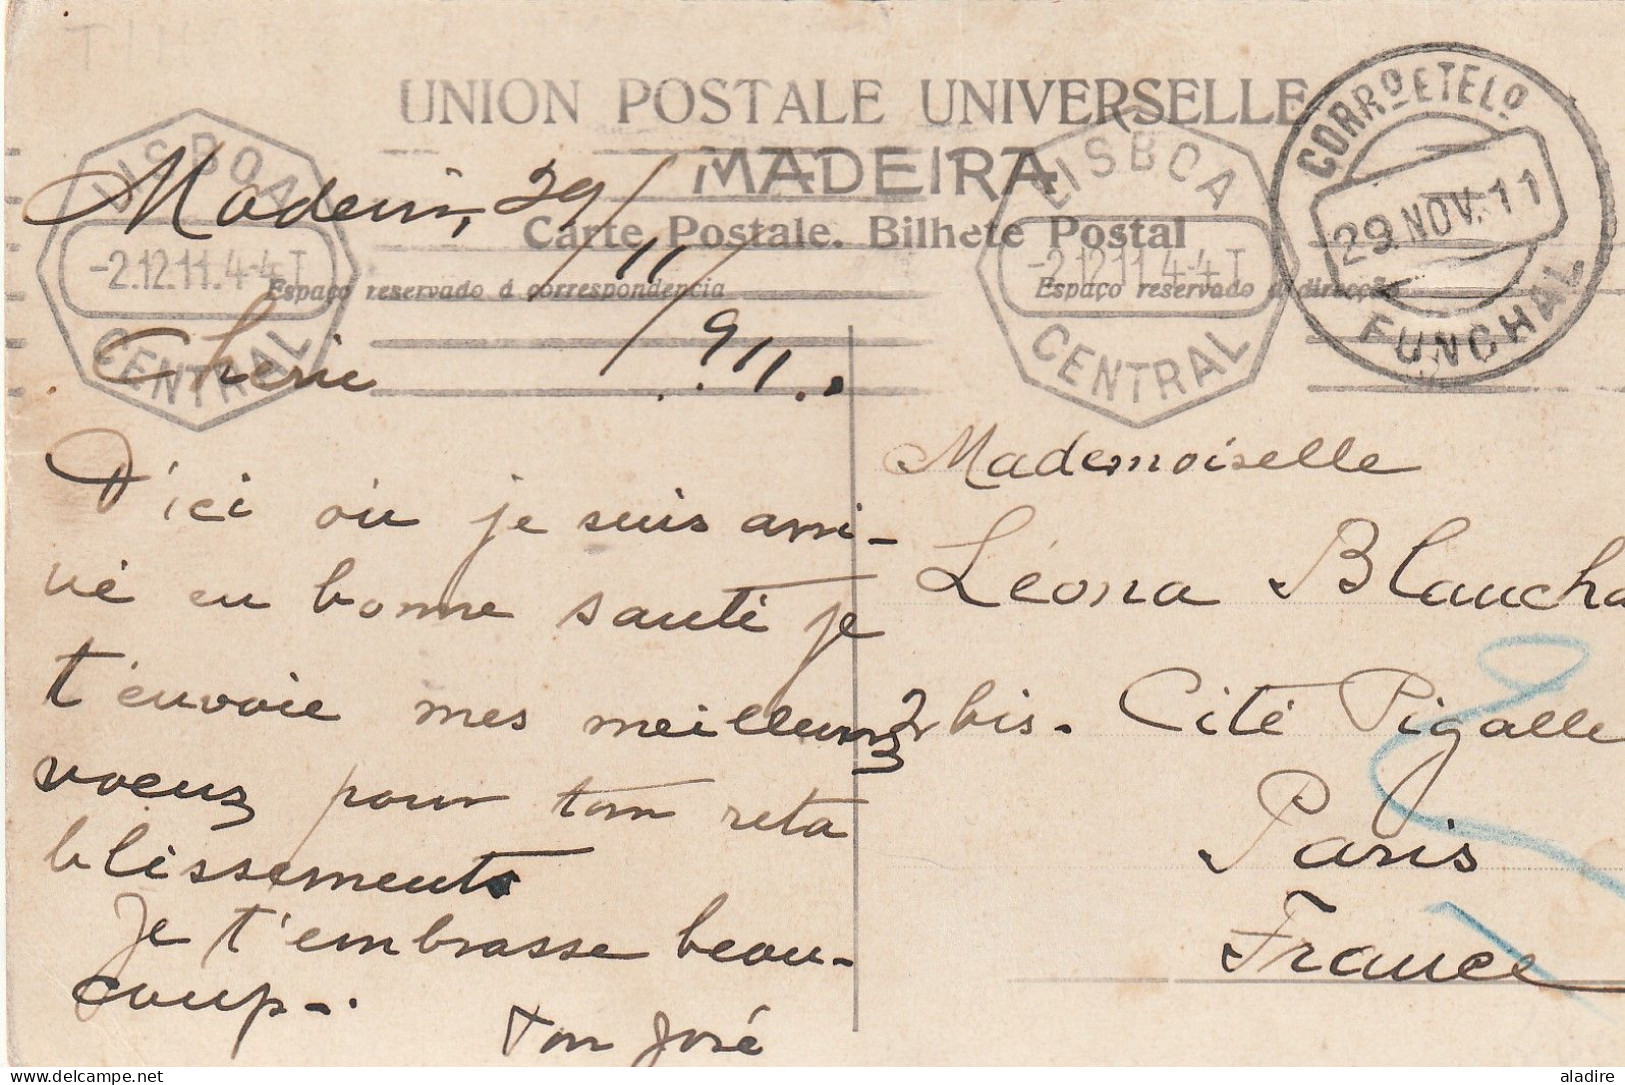 UNION POSTALE UNIVERSELLE
MADEIRA
Carte Postale. Bilhete Postal
Espaço reservado á correspondencia
Espaço reservado á direcção
LISBOA
-2.12.11.4-4T
CENTRAL
LISBOA
-2.12.11.4-4T
CENTRAL
CORRO E TELO
29 NOV. 11
FUNCHAL
Madeira, 29/11/911.
Cherie
D'ici où je suis arri-
vé en bonne santé je
t'envoie mes meilleurs
voeux pour ton reta
blissements
Je t'embrasse beau-
coup-.
Ton José
Mademoiselle
Léona Blancha
2 bis. Cité Pigalle
Paris
France
aladire